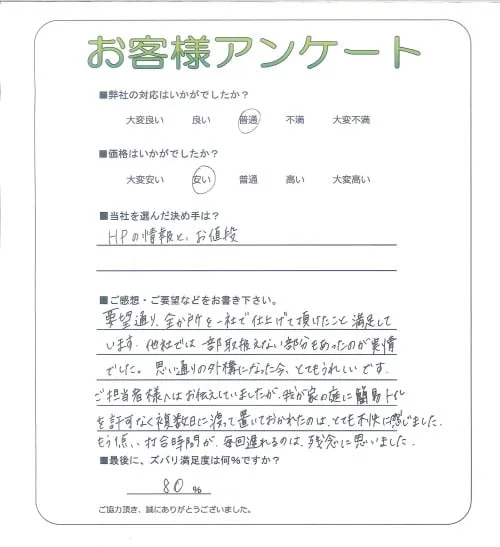 お客様アンケート
■弊社の対応はいかがでしたか?
大変良い 良い 普通 不満 大変不満
■価格はいかがでしたか?
大変安い 安い 普通 高い 大変高い
■当社を選んだ決め手は?
HPの情報と、お値段
■ご感想・ご要望などをお書き下さい。
要望通り、全か所を一社で仕上げて頂けたこと満足して
います。他社では一部取扱えない部分もあったのが実情
でした。思い通りの外構になった今、とてもうれしいです。
ご担当者様へはお伝えしていましたが、我が家の庭に簡易トイレ
を許すなく複数日に渡って置いておかれたのは、とても不快に感じました。
もう1点、打合時間が、毎回遅れるのは、残念に思いました。
■最後に、ズバリ満足度は何%ですか?
80 %
ご協力頂き、誠にありがとうございました。